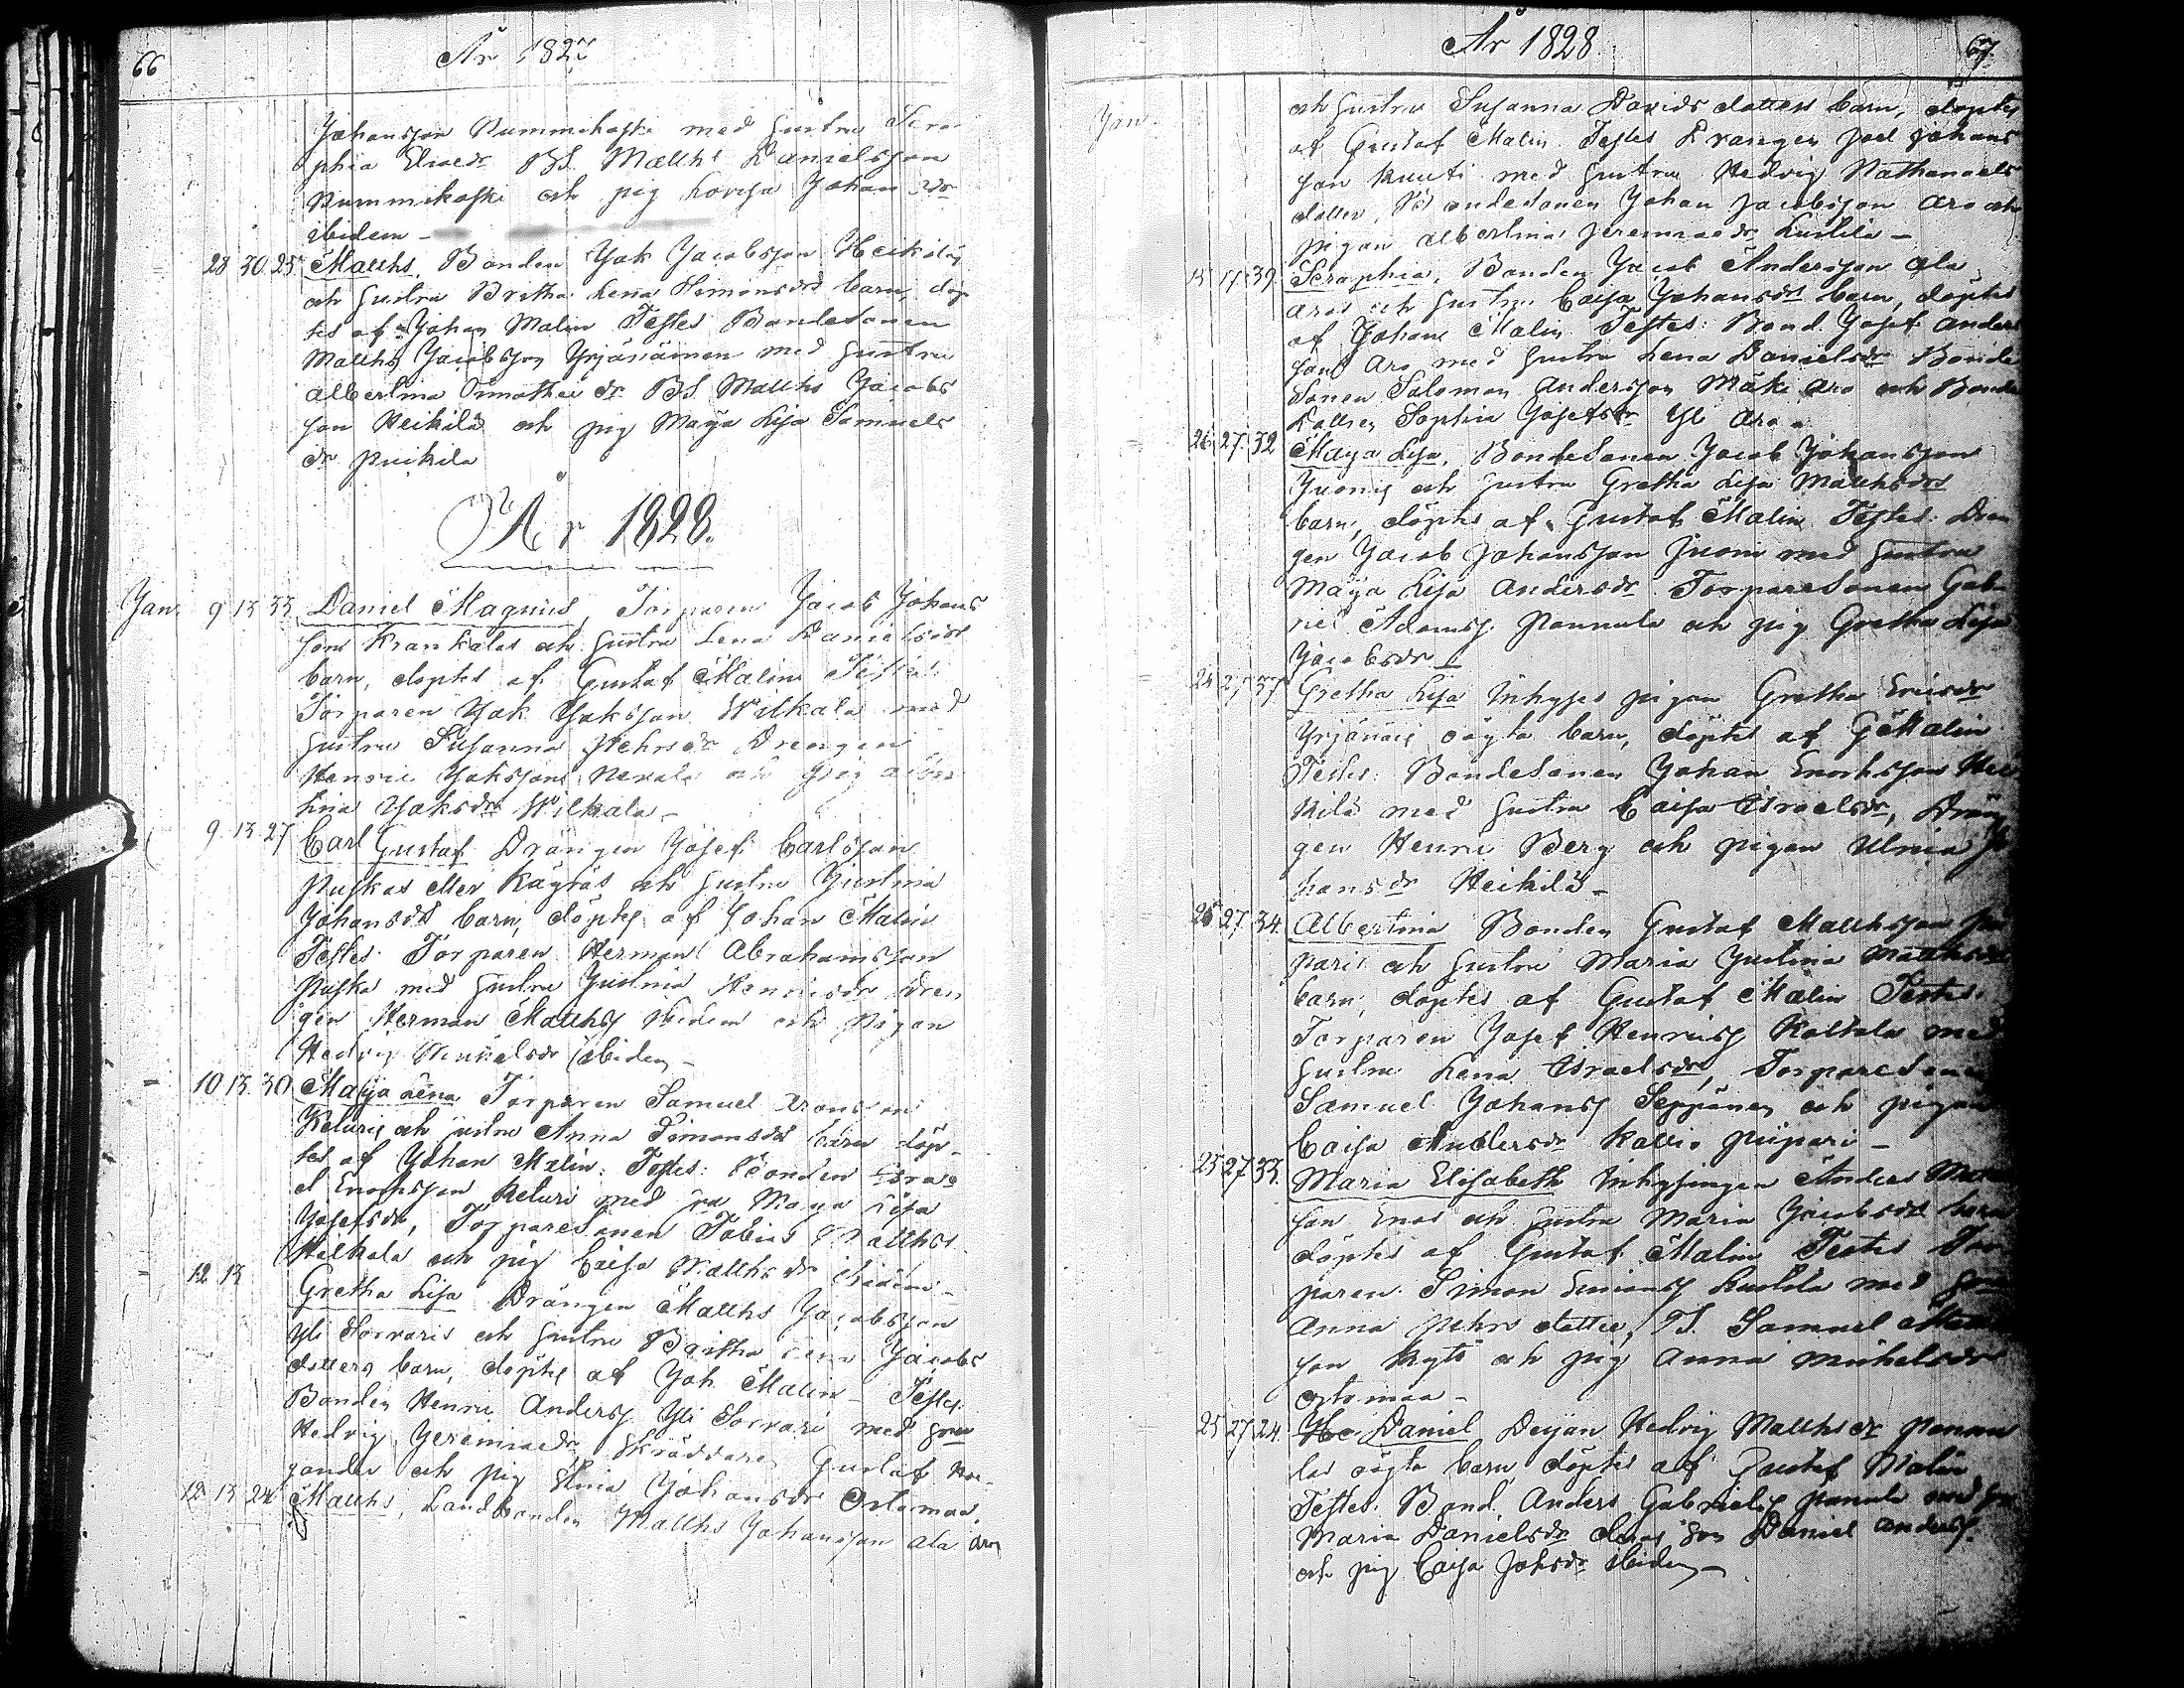 66
År 1827
Johansson Nummikoski med hustru Sera-
phia Eliaedr BS. Matths Danielsson
Nummikoski och pig Lovisa Johansdr
ibidem -
28 30 25 Matths, Bonden Jak Jacobsson Heikilas
och hustru Britha Lena Simonsdrs barn, döp
tes af Johan Malin Testes Bondesonen
Matths Jacobsson Yrjänäinen med hustru
Albertina Timothei dr BS. Matths Jacobs
son Heikilä och pig Maja Lisa Samuels
dr Puikila
År 1828.
Jan. 9 13 33 Daniel Magnus, Torparen Jacob Johans
sons Krankalas och hustru Lena Danielsdrs
barn, döptes af Gustaf Malin Testes:
Torparen Jak Jaksson Wilkala med
hustru Susanna Pehrsdr Drengen
Henric Jakssons och pig
Jaksdr Wilkala -
9 13 27 Carl Gustaf Drängen Josef Carlsson
Puskas eller och hustru Justina
Johansdrs barn, döptes af Johan Malin
Testes: Torparen Herman Abrahamsson
Puska med hustru Justina Henricsdr Dren
gen Herman Matths ibidem och Pigan
Hedvig ibidem -
10 13 30 Maja Lena Torparen Samuel
Keturis och hustru Anna Simonsdrs barn döp-
tes af Johan Malin: Testes: Bonden Isra-
el Enochsson Keturi med hu Maja Lisa
Josefsdr, Torparesonen Tobias Matths
Wilkala och pig Caisa Matthsdr ibidem -
12 13 Gretha Lisa Drängen Matths Jacobsson
Yli Sorvaris och hustru Britha Lena Jacobs
dotters barn, döptes af Joh. Malin - Testes
Bonden Henric Anderss Yli Sorvari med hru
Hedvig Jeremiaedr, Skräddare Gustaf
och pig Johansdr Ostamaa.
12 13 24 Matths, Landbonden Matths Johansson Ala Aro
År 1828.
67
Jan. och hustru Susanna Davids dotters barn, döptes
af Gustaf Malin. Testes Drängen Joel Johans
son Knuuti med hustru Hedvig Nathanaels
dotter, Bondesonen Johan Jacobsson Aro och
pigan Albertina Jeremiaedr Kustila -
15 17 39 Seraphia, Bonden Jacob Andersson Ala
aros och hustru Caisa Johansdrs barn, döptes
af Johan Malin Testes: Bond. Josef Anders
sons Aro med hustru Lena Danielsdr Bonde
Sonen Salomon Andersson Mäki Aro och Bonde
Dottren Sophia Josefsdr Yli Aro -
26 27 32 Maja Lisa, Bondesonen Jacob Johansson
Juonis och hustru Gretha Lisa Matthsdrs
barn, döptes af Gustaf Malin Testes: Drän
gen Jacob Johansson Juoni med hustru
Maja Lisa Andersdr Torparesonen Gab-
riel Adamss. Pannula och pig Gretha Lisa
Jacobsdr -
24 27 37 Gretha Lisa Inhyses pigan Gretha Ericsdr
Yrjänäis oägta barn, döptes af G Malin
Testes: Bondesonen Johan Enochsson Hei
kilä med hustru Caisa Israelsdr, Drän
gen Henric Berg och pigan Ulrica Jo
hansdr Heikilä -
25 27 34 Albertina Bonden Gustaf Matthsson Pii
paris och hustru Maria Justina Matthsdrs
barn, döptes af Gustaf Malin Testes:
Torparen Josef Henrics Koltala med
hustru Lena Israelsdr, Torparesonen
Samuel Johans Seppänen och pigan
Caisa Andersdr Kallio Piipari -
25 27 33 Maria Elisabeth Inhysingen Anders
son Enas och hustru Maria Jacobsdrs barn
döptes af Gustaf Malin Testes Tor
paren Simon Simonss Kustila med hru
Anna Pehrs dotter, TS. Samuel
son Kytö och pig Anna Michelsdr
Ostamaa -
25 27 24 Daniel Deijan Hedvig Matthsdr Pannu
las oägta barn döptes af Gustaf Malin
Testes: Bond. Anders Gabriels Panula med hu
Maria Danielsdr deras son Daniel Anderss.
och pig Caisa Johsdr ibidem -